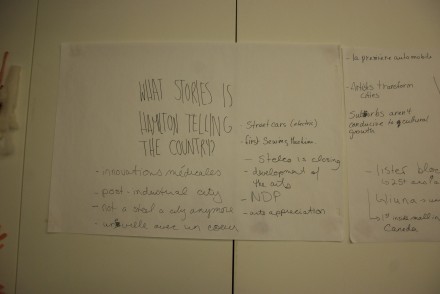 WHAT STORIES IS
HAMILTON TELLING
THE COUNTRY?
- innovations médicales
- post-industrial city
- not a steel city anymore
- une ville avec un coeur
- Street cars (electric)
- First Sewing Machine
- Stelco is closing
- development of
the arts
- NDP
- auto appreciation
- la première automobile
- Artists transform
cities
Suburbs aren't
conducive to cultural
growth
- lister
- 1st
Canada